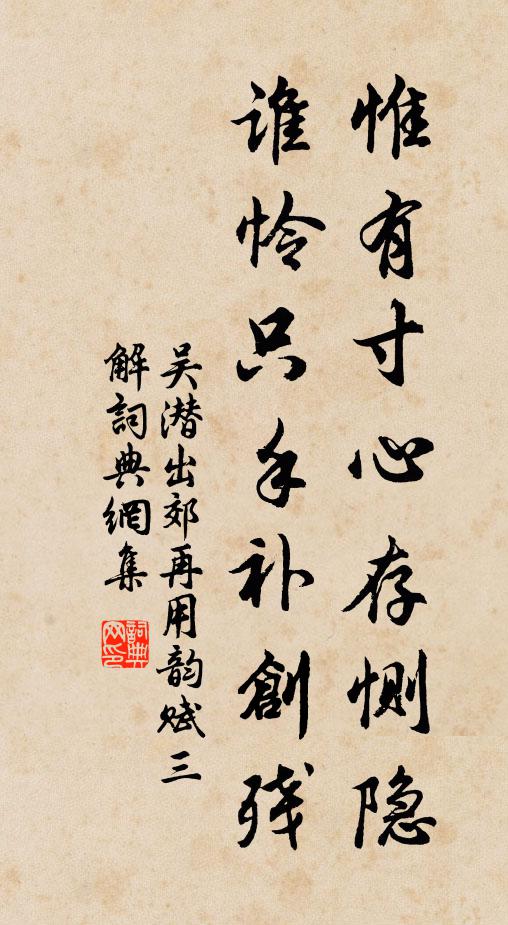 惟有寸心存恻隐
谁怜只手补創残
吴潜出郊再用韵赋三
解詞典網集
詞典網印